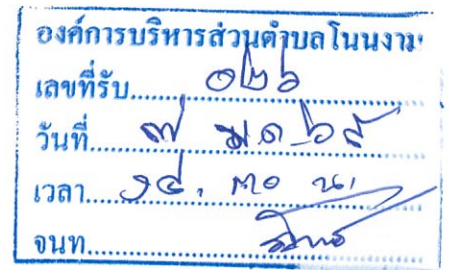 องค์การบริหารส่วนตำบลโนนงาม
เลขที่รับ.....๐๒๖
วันที่ ๗ ม.ค ๖๙
เวลา....๑๔. ๓๐ น.
จนท.